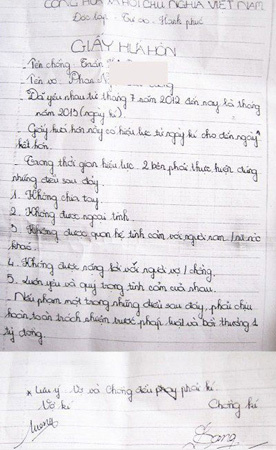 CỘNG HÒA XÃ HỘI CHỦ NGHĨA VIỆT NAM
Độc lập - Tự do - Hạnh phúc
GIẤY HỨA HÔN
- Tên chồng: Trần
- Tên vợ: Phan
- Đã yêu nhau từ tháng 7 năm 2012 đến nay là tháng
năm 2013 (ngày kí).
- Giấy hứa hôn này có hiệu lực từ ngày kí cho đến ngày
kết hôn.
- Trong thời gian hiệu lực 2 bên phải thực hiện đúng
những điều sau đây
1. Không chia tay.
2. Không được ngoại tình.
3. Không được quan hệ tình cảm với người nam / nữ
khác
4. Không được nặng lời với người vợ / chồng.
5. Luôn yêu và quý trọng tình cảm của nhau.
- Nếu phạm một trong những điều sau đây, phải chịu
hoàn toàn trách nhiệm trước pháp luật và bồi thường 1
tỷ đồng.
* Lưu ý: Vợ và Chồng đều phải kí.
Vợ kí Chồng kí
Sang